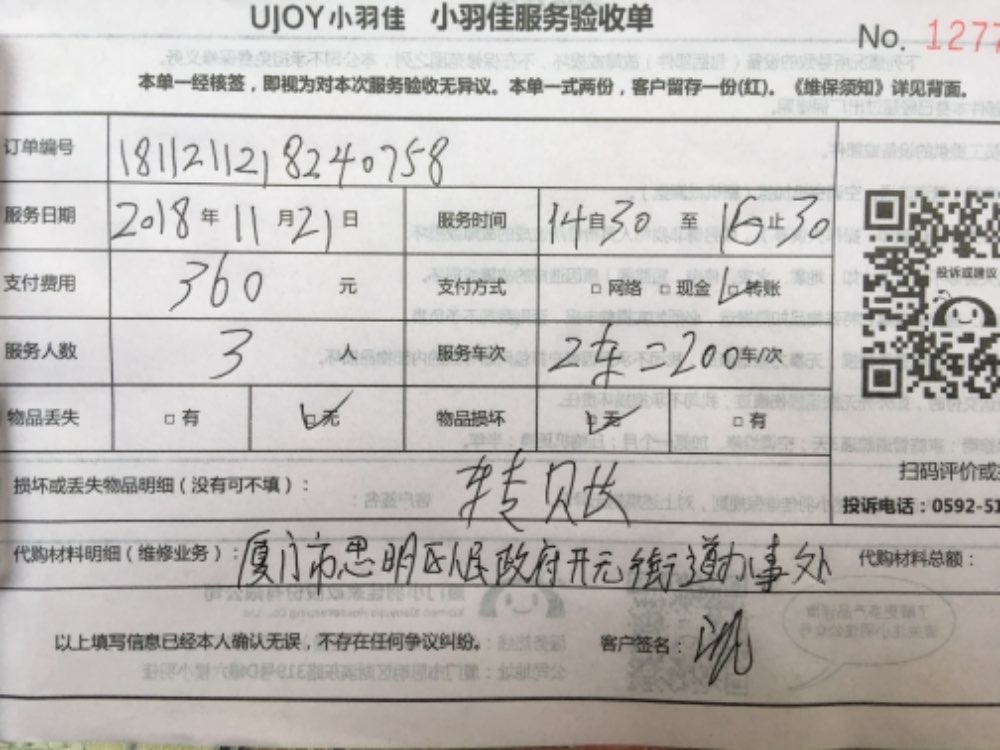 UJOY小羽佳 小羽佳服务验收单
No. 1277
本单一经接签，即视为对本次服务验收无异议。本单一式两份，客户留存一份(红)。《维保须知》详见背面。
订单编号 181121121 8240758
服务日期 2018 年 11 月 21 日 服务时间 14 自 30 至 16 止 30
支付费用 360 元 支付方式 □ 网络 □ 现金 □ 转账
投诉或建议
服务人数 3 人 服务车次 2车=200 车/次
物品丢失 □ 有 □ 无 物品损坏 □ 无 □ 有
扫码评价或
损坏或丢失物品明细（没有可不填）： 转
投诉电话：0592-51
代购材料明细（维修业务）： 厦门市思明区人民政府开元街道办事处 代购材料总额：
以上填写信息已经本人确认无误，不存在任何争议纠纷。 客户签名：